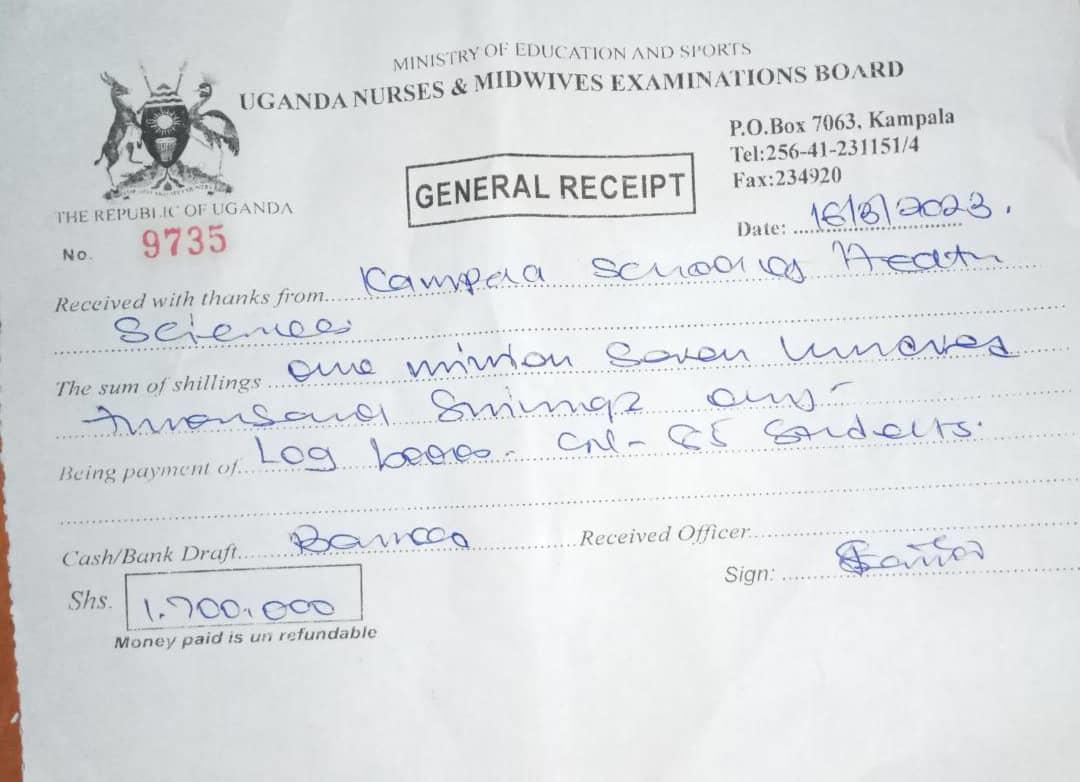 MINISTRY OF EDUCATION AND SPORTS
UGANDA NURSES & MIDWIVES EXAMINATIONS BOARD
P.O.Box 7063, Kampala
Tel:256-41-231151/4
Fax:234920
THE REPUBLIC OF UGANDA
GENERAL RECEIPT
No. 9735
Date: 16/8/2023.
Received with thanks from Kampala School of Health
Sciences
The sum of shillings one million Seven hundred
thousand Shillings only
Being payment of Log books - 85 Students.
Cash/Bank Draft
Received Officer
Sign:
Shs. 1,700,000
Money paid is un refundable